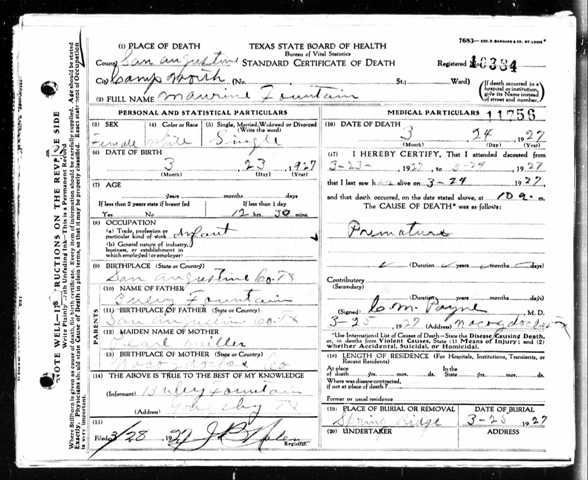 (1) PLACE OF DEATH
TEXAS STATE BOARD OF HEALTH
Bureau of Vital Statistics
STANDARD CERTIFICATE OF DEATH
County San Augustine
Registered
City Camp Worth (No. St.; Ward)
(If death occurred in a hospital or institution, give its Name instead of street and number.)
(2) FULL NAME Maurine Fountain
11756
PERSONAL AND STATISTICAL PARTICULARS
(3) SEX
Female
(4) Color or Race
White
(5) Single, Married, Widowed or Divorced (Write the word)
Single
(6) DATE OF BIRTH
3 23 1927
(Month) (Day) (Year)
(7) AGE
years months days
If less than 2 years state if breast fed
Yes No
If less than 1 day
12 hrs. 30 mins
(8) OCCUPATION
(a) Trade, profession or particular kind of work Infant
(b) General nature of industry, business, or establishment in which employed or employer)
(9) BIRTHPLACE (State or Country)
San Augustine Co. Tx
(10) NAME OF FATHER
Fountain
(11) BIRTHPLACE OF FATHER (State or Country)
San Augustine Co. Tx
(12) MAIDEN NAME OF MOTHER
Pearl Miller
(13) BIRTHPLACE OF MOTHER (State or Country)
(14) THE ABOVE IS TRUE TO THE BEST OF MY KNOWLEDGE
(Informant) Fountain
(Address)
(15)
Filed 3/28 1927
Registrar
MEDICAL PARTICULARS
(16) DATE OF DEATH
3 24 1927
(Month) (Day) (Year)
(17) I HEREBY CERTIFY, That I attended deceased from
3-23- 1927 to 3-24 1927
that I last saw h alive on 3-24 1927
and that death occurred, on the date stated above, at 10 a.
The CAUSE OF DEATH* was as follows:
Premature
(Duration years months days)
Contributory
(Secondary)
(Duration) years months days
(Signed) C. M. Payne M. D.
3-25 1927 (Address) Nacogdoches
*Use International List of Causes of Death. State the Disease Causing Death, or, in deaths from Violent Causes, State (1) Means of Injury; and (2) whether Accidental, Suicidal, or Homicidal.
(18) LENGTH OF RESIDENCE (For Hospitals, Institutions, Transients, or Recent Residents)
At place of death yrs. mos. ds. State yrs. mos. ds.
Where was disease contracted, if not at place of death?
Former or usual residence
(19) PLACE OF BURIAL OR REMOVAL
Spring Ridge
DATE OF BURIAL
3-25 1927
(20) UNDERTAKER
ADDRESS
PARENTS